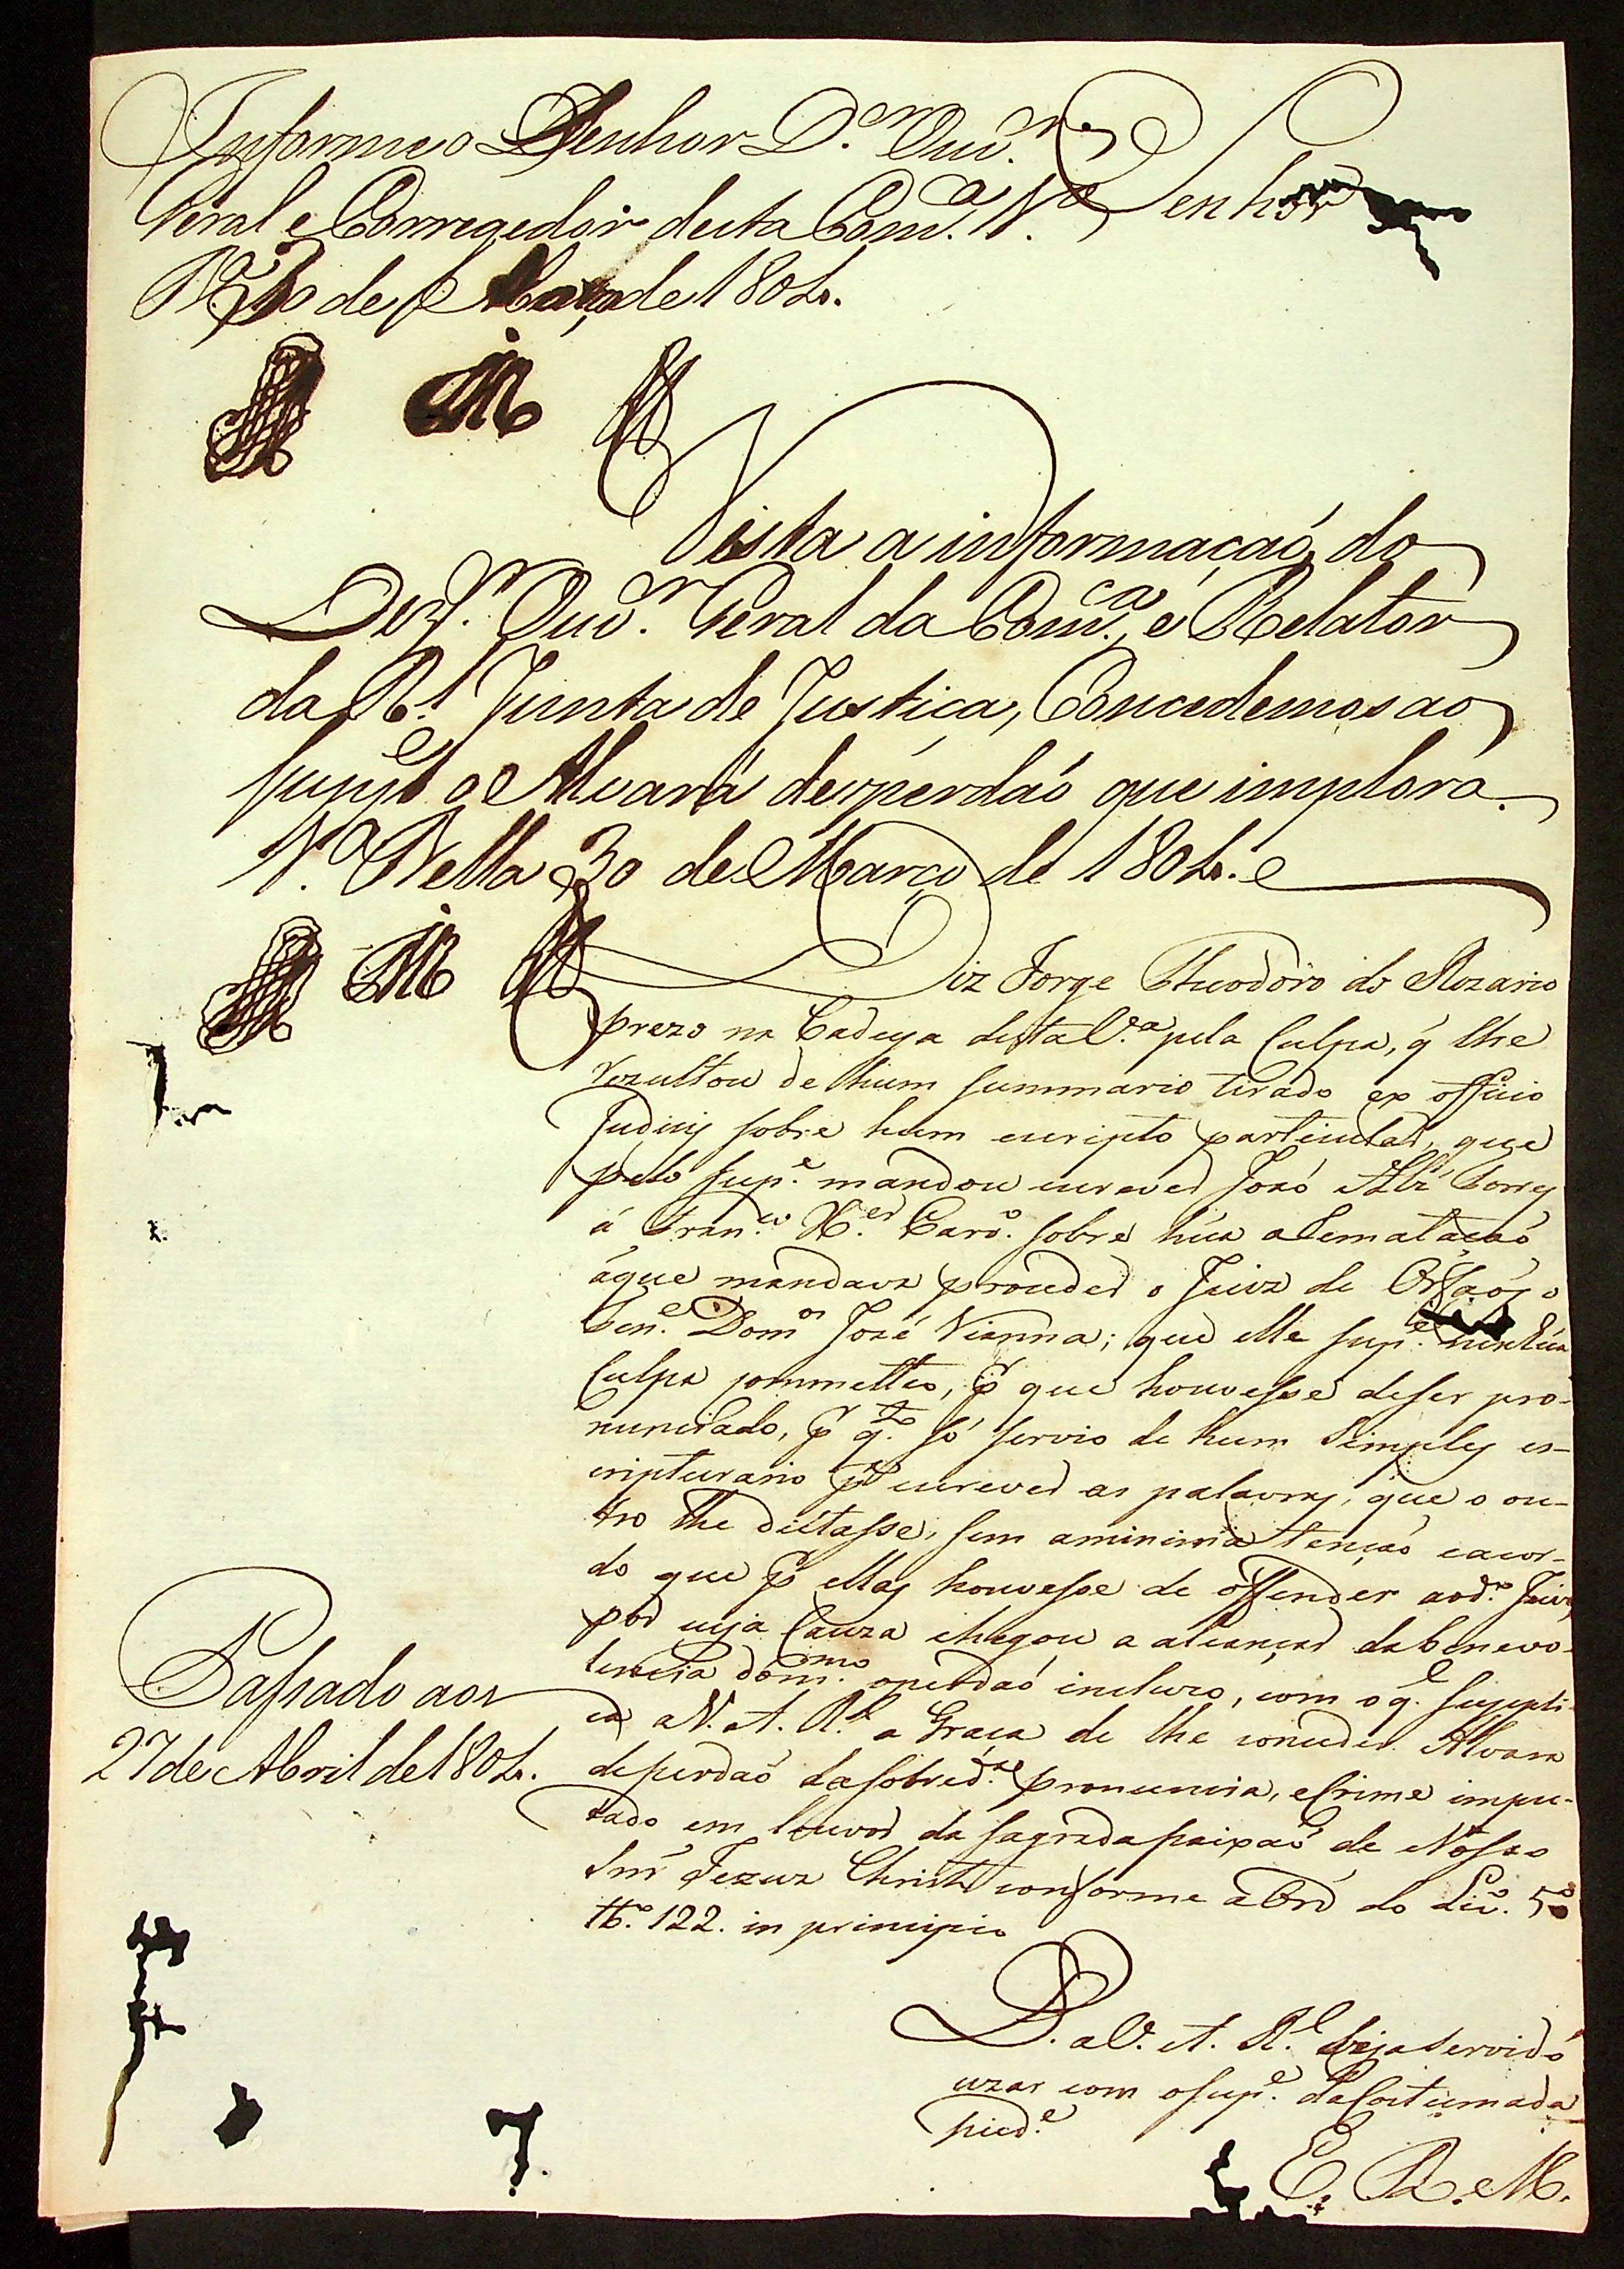 Informe o Senhor D.or Ouv.or
Geral e Corregedor desta Com.ca V.a
de Março de 1804.
Senhor
Vista a informaçaõ do
Dez.or Ouv.or Geral da Com.ca, e Relator
da R.l Junta de Justiça, Concedemos ao
supp.e o Alvará de perdaõ que implora.
V.a Bella 30 de Março de 1804.
Diz Jorge Theodoro do Rozario
prezo na Cadeya desta V.a pela Culpa, q̃ lhe
rezultou de hum summario tirado ex officio
Judicis sobre hum escripto particular, que
pelo sup.e mandou escrever Jozé Alz' Torres
á Fran.co X.er Card.o sobre hũa arematacaõ
áque mandava proceder o Juiz de Orfaõs o
Ten.e Dom.os Jozé Vianna; que elle sup.e nenhũa
Culpa commetteo, p.r que houvesse deser pro-
nunciado, p.r q.to só servio de hum simples es-
cripturario p.a escrever as palavras, que o ou-
tro lhe dictasse, sem aminima tençaõ eacor-
do que p.r ellas houvesse de offender aod.o Juiz
por cuja Cauza chegou a alcançar da benevo-
lencia dom.mo operdaõ incluzo, com o q.l suppli-
ca a V. A. R.l a Graça de lhe conceder Alvara
deperdaõ dasobred.ta pronuncia, eCrime impu-
tado em louvor da sagrada paixaõ de Nosso
Snr' Jezus Christo conforme a Ord do Liv.o 5.o
tt.o 122. in principio
P. a V. A. R.l seja servido
uzar com o sup.e da Costumada
pied.e
E. R. M.
Passado aos
27 de Abril de 1804.